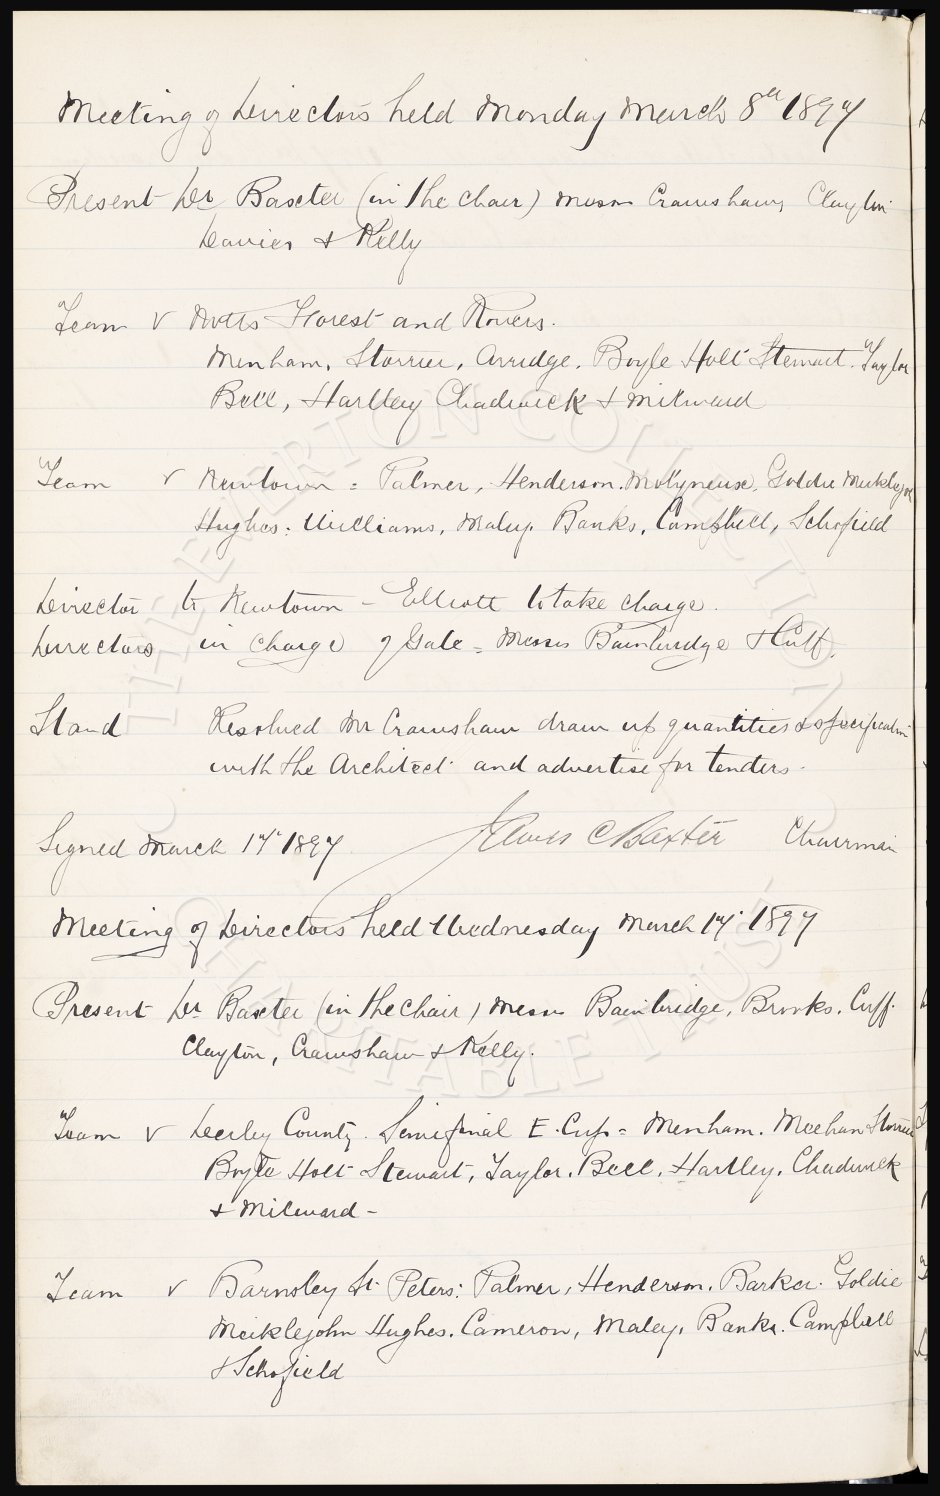 Meeting of Directors held Monday March 8th 1897
Present Dr Baxter (in the chair) Messrs Crawshaw, Clayton
Davies & Kelly
Team v Notts Forest and Rovers.
Menham, Storrier, Arridge. Boyle Holt Stewart. Taylor
Bell, Hartley Chadwick & Milward
Team v Newtown = Palmer, Henderson. Mollyneux. Goldie Meiklejohn
Hughes: Williams, Maley. Banks, Campbell, Schofield
Director to Newtown - Elliott to take charge.
Directors in charge of Gate = Messrs Bainbridge & Cuff.
Stand Resolved Mr Crawshaw draw up quantities & specification
with the Architect and advertise for tenders.
Signed March 17th 1897 James C Baxter Chairman
Meeting of Directors held Wednesday March 17th 1897
Present Dr Baxter (in the Chair) Messrs Bainbridge, Brooks. Cuff.
Clayton, Crawshaw & Kelly.
Team v Derby County. Semifinal E. Cup = Menham. Meehan Storrier
Boyle Holt Stewart, Taylor. Bell. Hartley. Chadwick
& Milward -
Team v Barnsley St Peters: Palmer, Henderson. Barker. Goldie
Meiklejohn Hughes. Cameron, Maley. Banks. Campbell
& Schofield
THE EVERTON COLLECTION
CHARITABLE TRUST